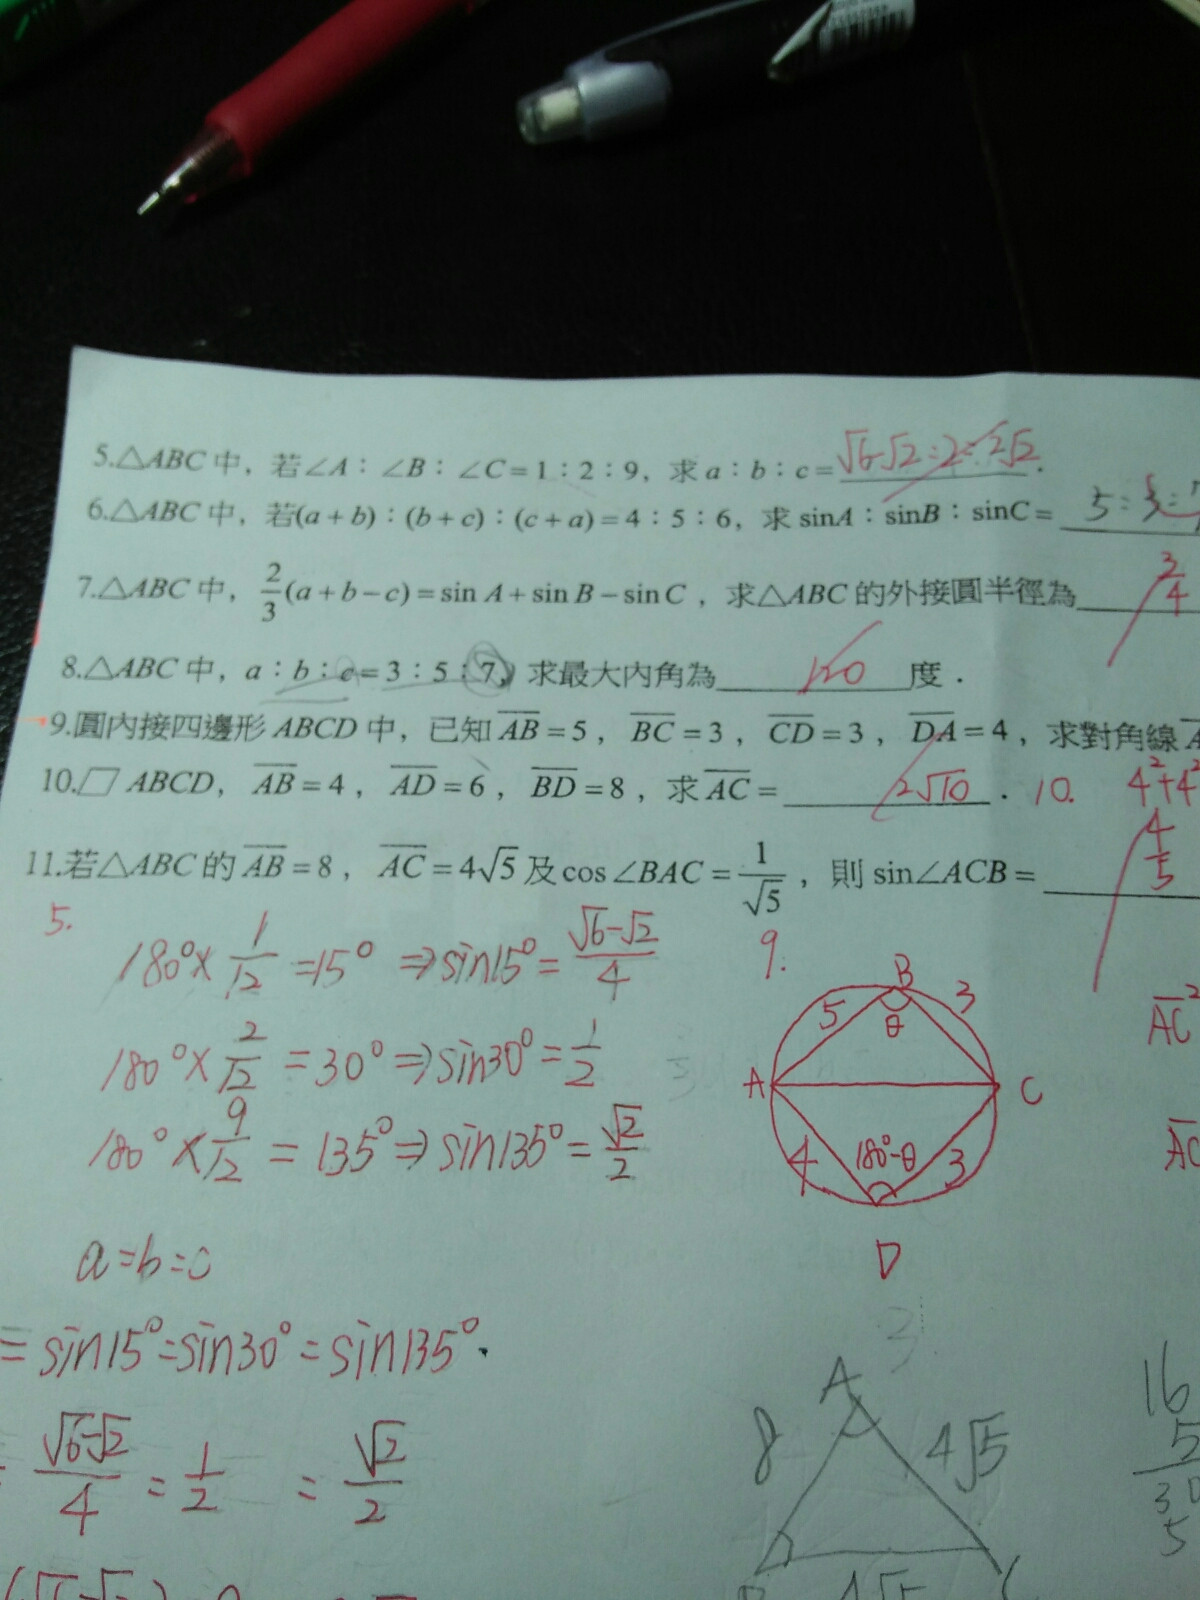 5.△ABC中，若∠A：∠B：∠C=1：2：9，求a：b：c=√6-√2:2:2√2.
6.△ABC中，若(a+b)：(b+c)：(c+a)=4：5：6，求sinA：sinB：sinC=5:3:7
7.△ABC中，2/3(a+b−c)=sin A+sin B−sin C，求△ABC的外接圓半徑為 3/4
8.△ABC中，a：b：c=3：5：7，求最大內角為 120 度．
9.圓內接四邊形ABCD中，已知AB=5，BC=3，CD=3，DA=4，求對角線A
10.▱ABCD，AB=4，AD=6，BD=8，求AC= 2√10 ．
10. 4²+4²
11.若△ABC的AB=8，AC=4√5及cos∠BAC=1/√5，則sin∠ACB= 4/5
5.
180°×1/12=15°⇒sin15°=(√6-√2)/4
180°×2/12=30°⇒sin30°=1/2
180°×9/12=135°⇒sin135°=√2/2
a=b=c
=sin15°=sin30°=sin135°.
(√6-√2)/4=1/2=√2/2
9.
B
5
3
θ
A
C
4
180°-θ
3
D
AC²
AC
3
A
8
4√5
16
5
30
5